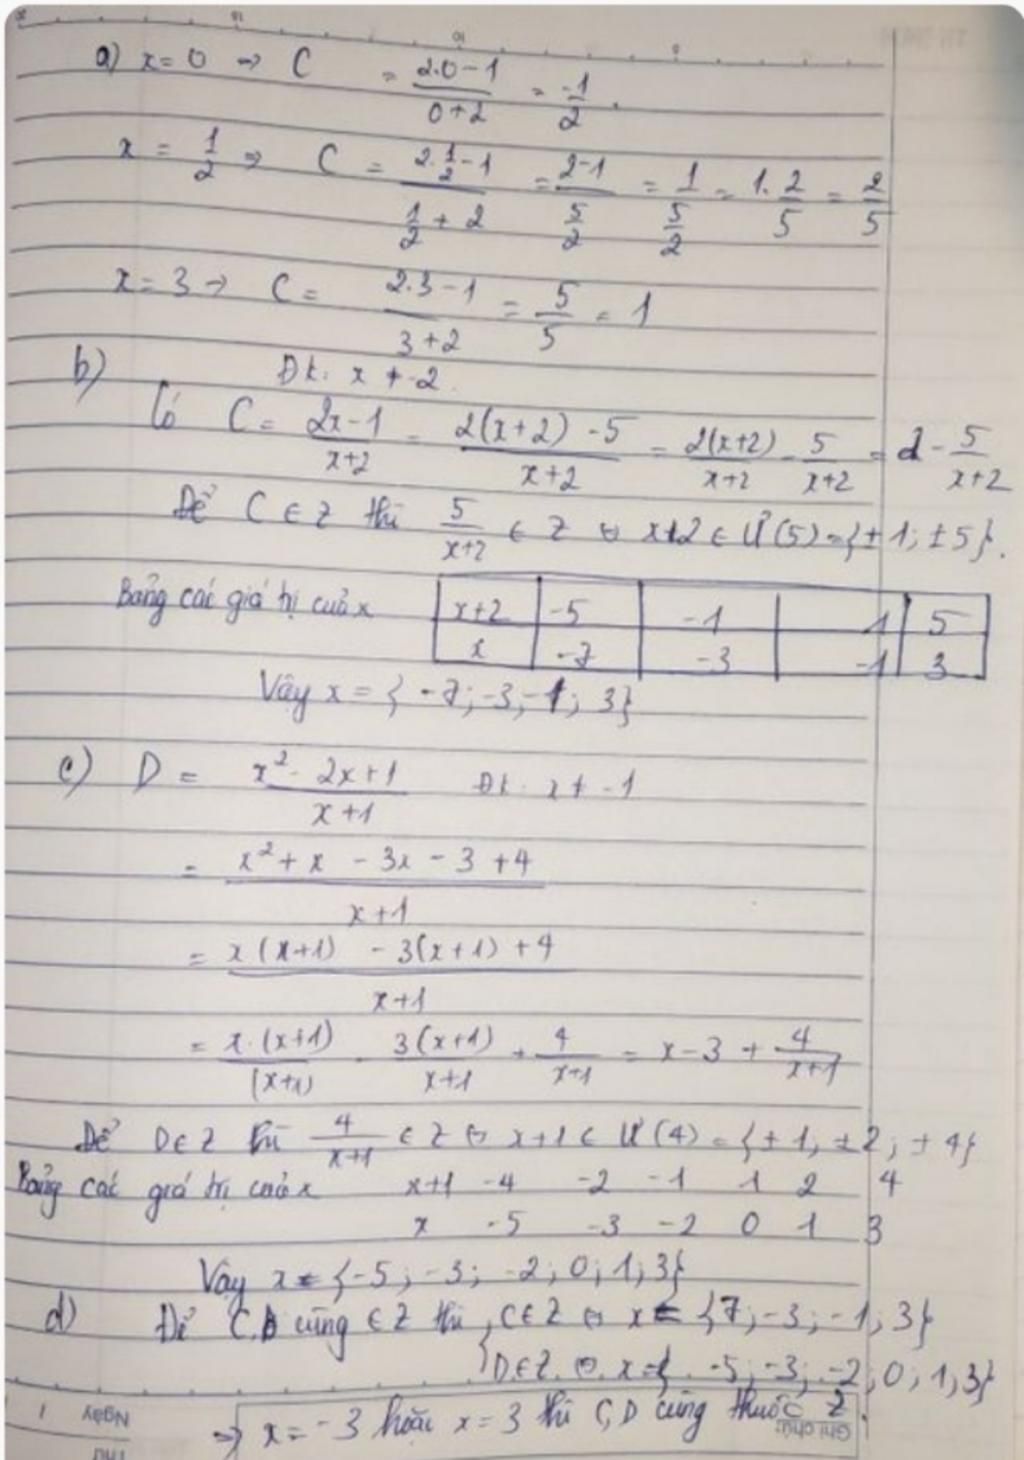 a) x = 0 => C = (2.0 - 1)/(0 + 2) = -1/2.
x = 1/2 => C = (2.1/2 - 1)/(1/2 + 2) = (2-1)/(5/2) = 1/(5/2) = 1.2/5 = 2/5
x = 3 -> C = (2.3 - 1)/(3+2) = 5/5 = 1
b) Đk: x ≠ -2.
Có C = (2x-1)/(x+2) = (2(x+2) - 5)/(x+2) = 2(x+2)/(x+2) - 5/(x+2) = 2 - 5/(x+2)
Để C ∈ Z thì 5/(x+2) ∈ Z ⇔ x+2 ∈ Ư(5) = {±1; ±5}.
Bảng các giá trị của x
x+2 -5 -1 1 5
x -7 -3 -1 3
Vậy x = {-7; -3; -1; 3}
c) D = (x² - 2x + 1)/(x+1) Đk: x ≠ -1
= (x² + x - 3x - 3 + 4)/(x+1)
= (x(x+1) - 3(x+1) + 4)/(x+1)
= x.(x+1)/(x+1) - 3(x+1)/(x+1) + 4/(x+1) = x-3 + 4/(x+1)
Để D ∈ Z thì 4/(x+1) ∈ Z ⇔ x+1 ∈ Ư(4) = {±1; ±2; ±4}
Bảng các giá trị của x x+1 -4 -2 -1 1 2 4
x -5 -3 -2 0 1 3
Vậy x = {-5; -3; -2; 0; 1; 3}
d) Để C, D cùng ∈ Z thì C ∈ Z ⇔ x ∈ {7; -3; -1; 3}
D ∈ Z ⇔ x = {-5; -3; -2; 0; 1; 3}
=> x = -3 hoặc x = 3 thì C, D cùng thuộc Z.
Ghi chú:
Ngày
THỨ